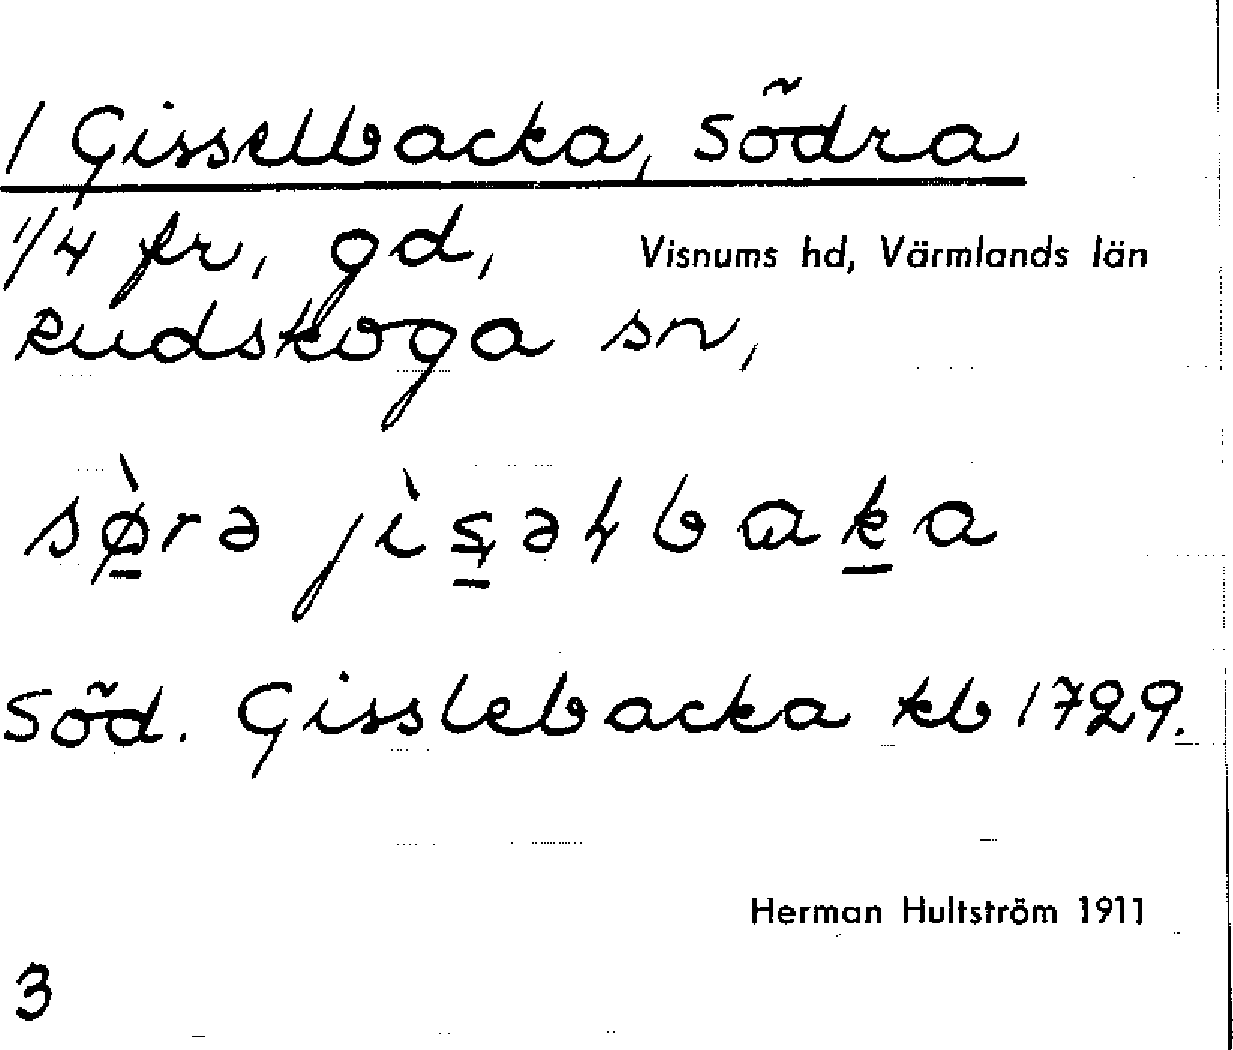 1 Gisselbacka, Södra
1/4 fr, gd, Visnums hd, Värmlands län
Rudskoga sn,
sø̀rə jìsəɫbaka
Söd. Gisslebacka kb 1729.
Herman Hultström 1911
3